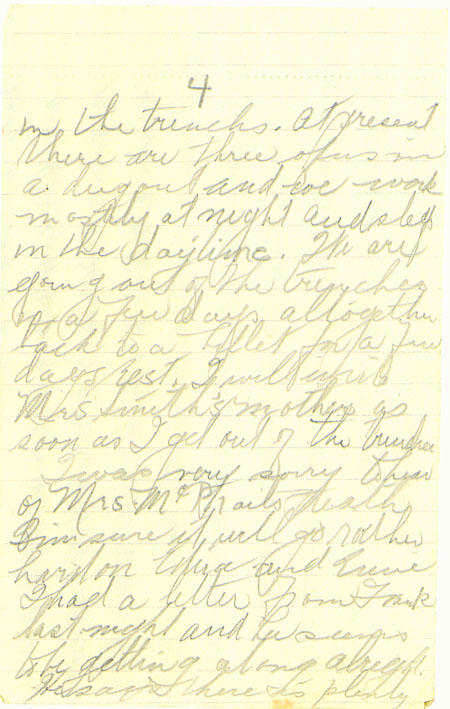 4
in the trenchs. At present
there are three of us in
a dugout and we work
mostly at night and sleep
in the daytime. We are
going out of the trenches
in a few days altogether
back to a billet for a few
days rest. I will write
Mrs Smith's mother as
soon as I get out of the trenches
I was very sorry to hear
of Mrs. McPhails death
I'm sure it will go rather
hard on and
I had a letter from Frank
last night and he seems
to be getting along alright.
He says there is plenty